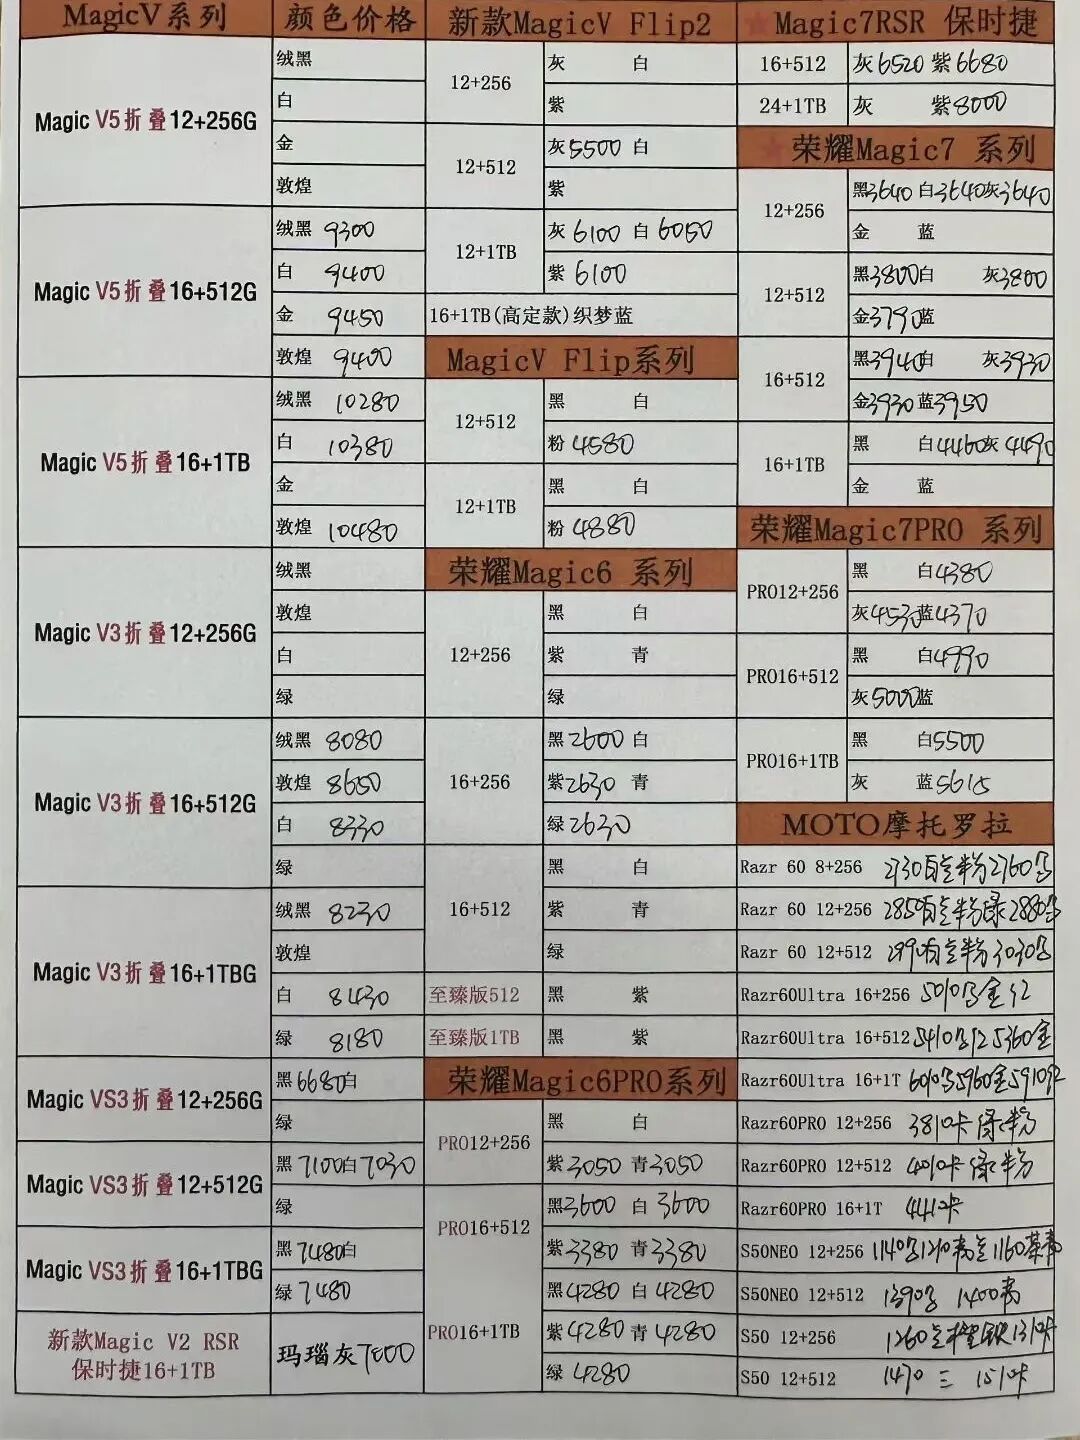 MagicV系列
颜色价格
Magic V5折叠12+256G
绒黑
白
金
敦煌
Magic V5折叠16+512G
绒黑 9300
白 9400
金 9450
敦煌 9400
Magic V5折叠16+1TB
绒黑 10280
白 10380
金
敦煌 10480
Magic V3折叠12+256G
绒黑
敦煌
白
绿
Magic V3折叠16+512G
绒黑 8080
敦煌 8650
白 8330
绿
Magic V3折叠16+1TBG
绒黑 8230
敦煌
白 8430
绿 8180
Magic VS3折叠12+256G
黑6680白
绿
Magic VS3折叠12+512G
黑7100白7030
绿
Magic VS3折叠16+1TBG
黑7480白
绿7480
新款Magic V2 RSR
保时捷16+1TB
玛瑙灰7000
新款MagicV Flip2
12+256
灰 白
紫
12+512
灰5500 白
紫
12+1TB
灰6100 白6050
紫6100
16+1TB(高定款)织梦蓝
MagicV Flip系列
12+512
黑 白
粉4580
12+1TB
黑 白
粉4880
荣耀Magic6 系列
12+256
黑 白
紫 青
绿
16+256
黑2600白
紫2630 青
绿2630
16+512
黑 白
紫 青
绿
至臻版512
黑 紫
至臻版1TB
黑 紫
荣耀Magic6PRO系列
PRO12+256
黑 白
紫3050 青3050
PRO16+512
黑3600 白3600
紫3380 青3380
PRO16+1TB
黑4280 白4280
紫4280 青4280
绿 4280
★Magic7RSR 保时捷
16+512
灰6520 紫6680
24+1TB
灰 紫8000
★荣耀Magic7 系列
12+256
黑3640 白3640灰3640
金 蓝
12+512
黑3800白 灰3800
金3790蓝
16+512
黑3940白 灰3930
金3930蓝3950
16+1TB
黑 白4460灰4490
金 蓝
荣耀Magic7PRO 系列
PRO12+256
黑 白4380
灰4530蓝4370
PRO16+512
黑 白4990
灰5000蓝
PRO16+1TB
黑 白5500
灰 蓝5615
MOTO摩托罗拉
Razr 60 8+256 2730 粉2760
Razr 60 12+256 粉绿2880
Razr 60 12+512 粉3030
Razr60Ultra 16+256 5010 金红
Razr60Ultra 16+512 5410 5360金
Razr60Ultra 16+1T 5960金5910红
Razr60PRO 12+256 3810卡绿粉
Razr60PRO 12+512 4010卡绿粉
Razr60PRO 16+1T 4410卡
S50NEO 12+256 1140 1210 1160
S50NEO 12+512 1390 1400
S50 12+256 1260 1310卡
S50 12+512 1470 三 1510卡